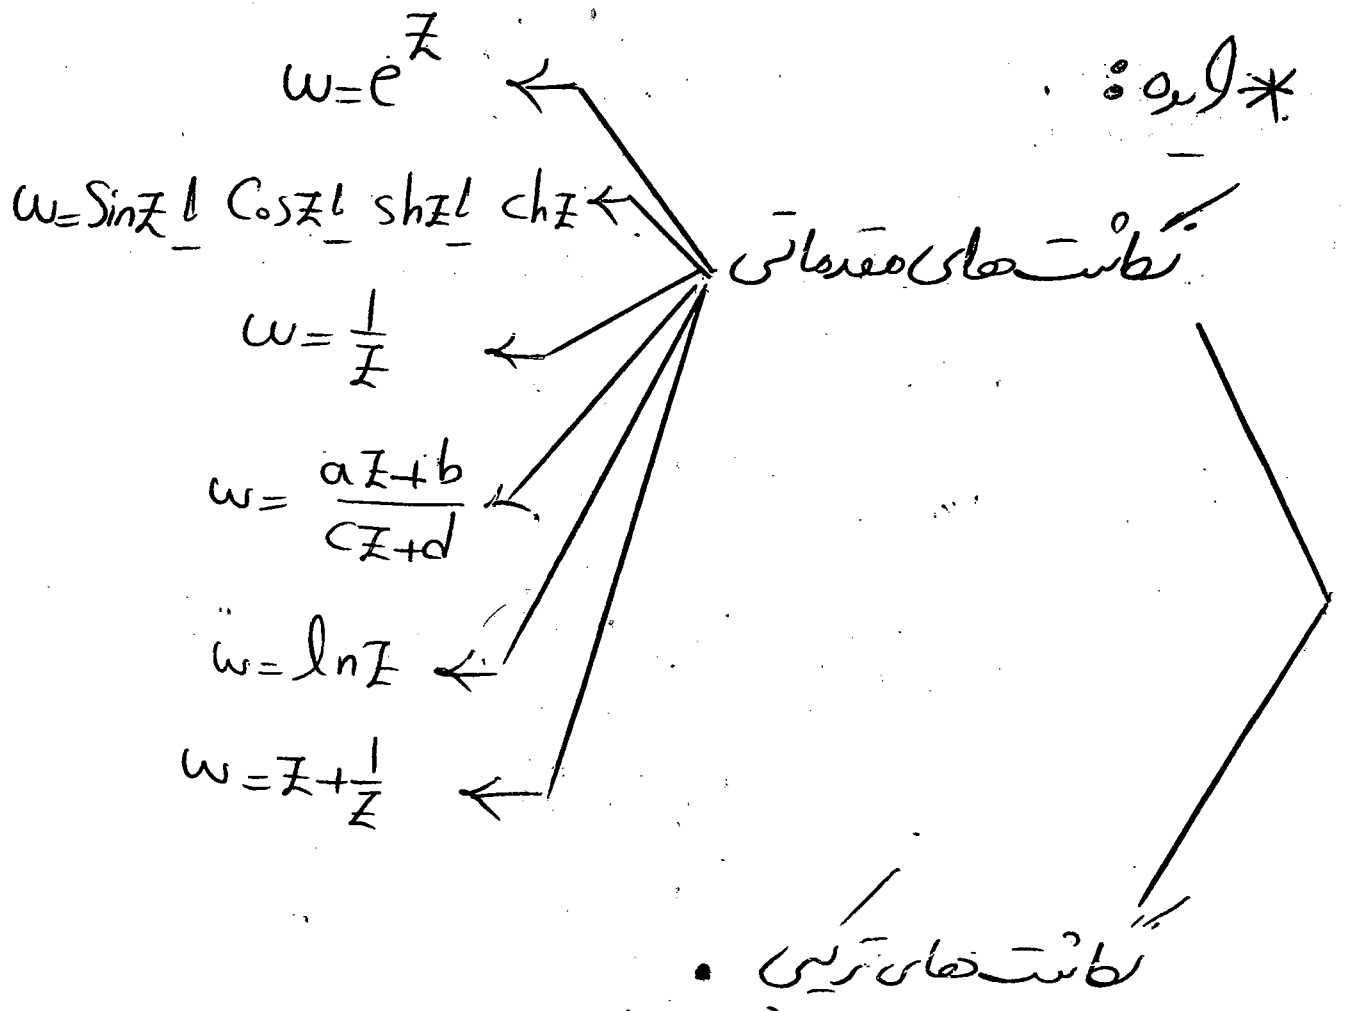 * ایده :
نگاشت‌های مقدماتی
w = e^z
w = Sin z یا Cos z یا sh z یا ch z
w = 1/z
w = (az+b)/(cz+d)
w = ln z
w = z + 1/z
نگاشت‌های ترکیبی .